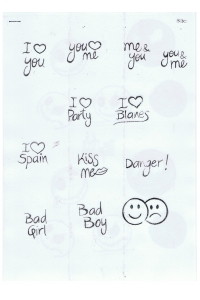 I ♡ you
you ♡ me
me & you
you & me
I ♡ Party
I ♡ Blanes
I ♡ Spain
Kiss me
Danger!
Bad Girl
Bad Boy